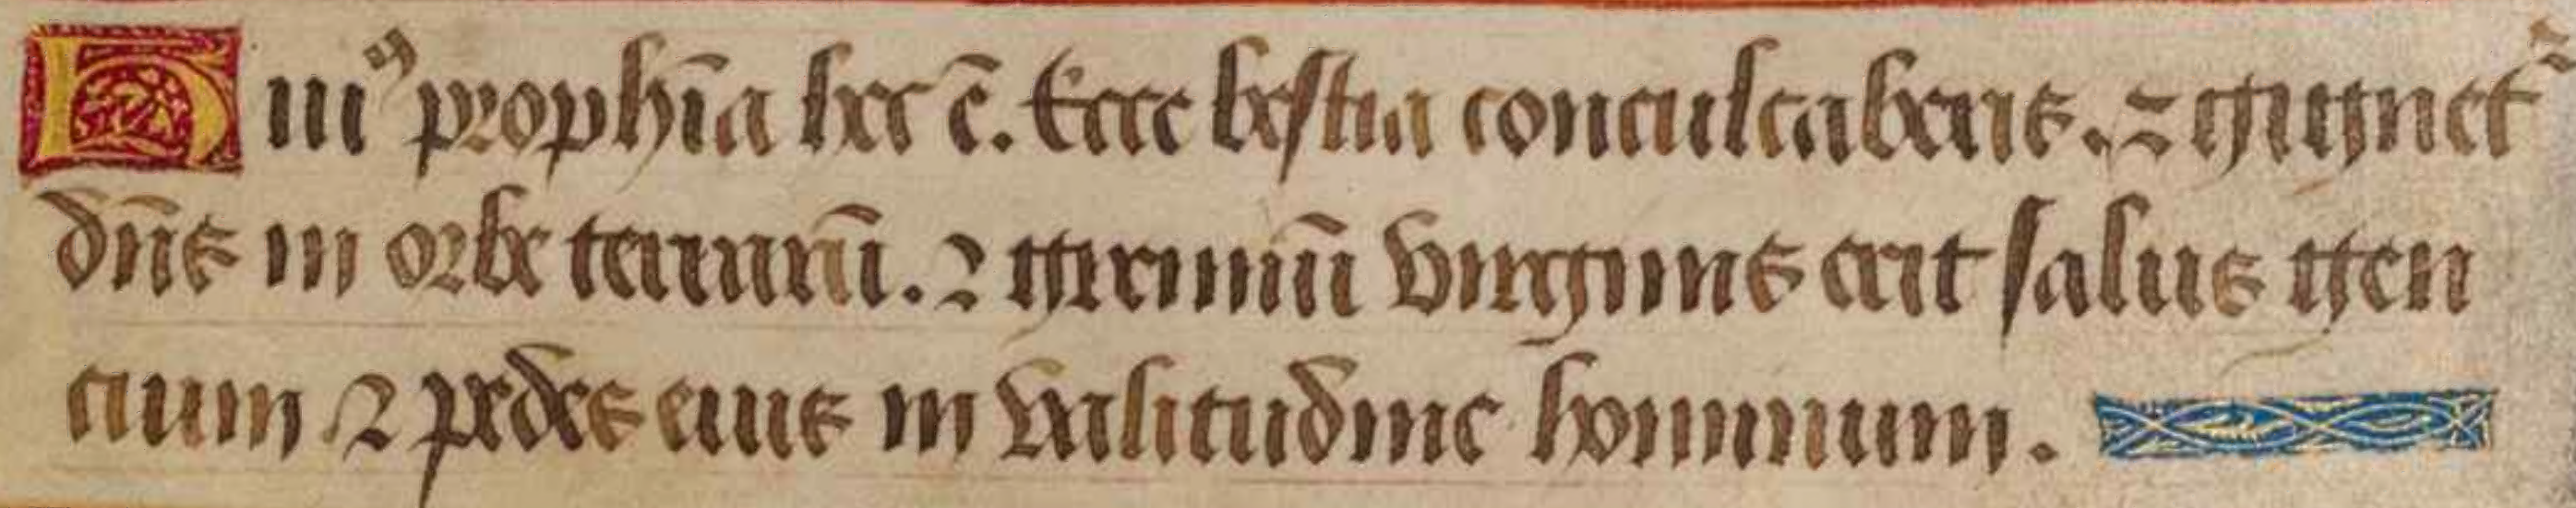 Huiꝰ proph̅ia hec ē. Ecce bestia conculcaberis. ⁊ gignet᷑
dn̄s in orbe terrarū. ⁊ gremiū virginis erit salus gen
cium ⁊ pedes eius in valitudine hominum.